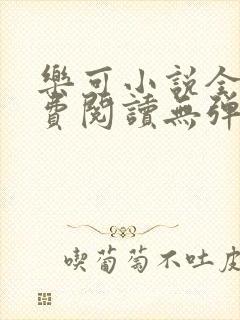 樂可小説全
費閱讀無彈
喫葡萄不吐皮